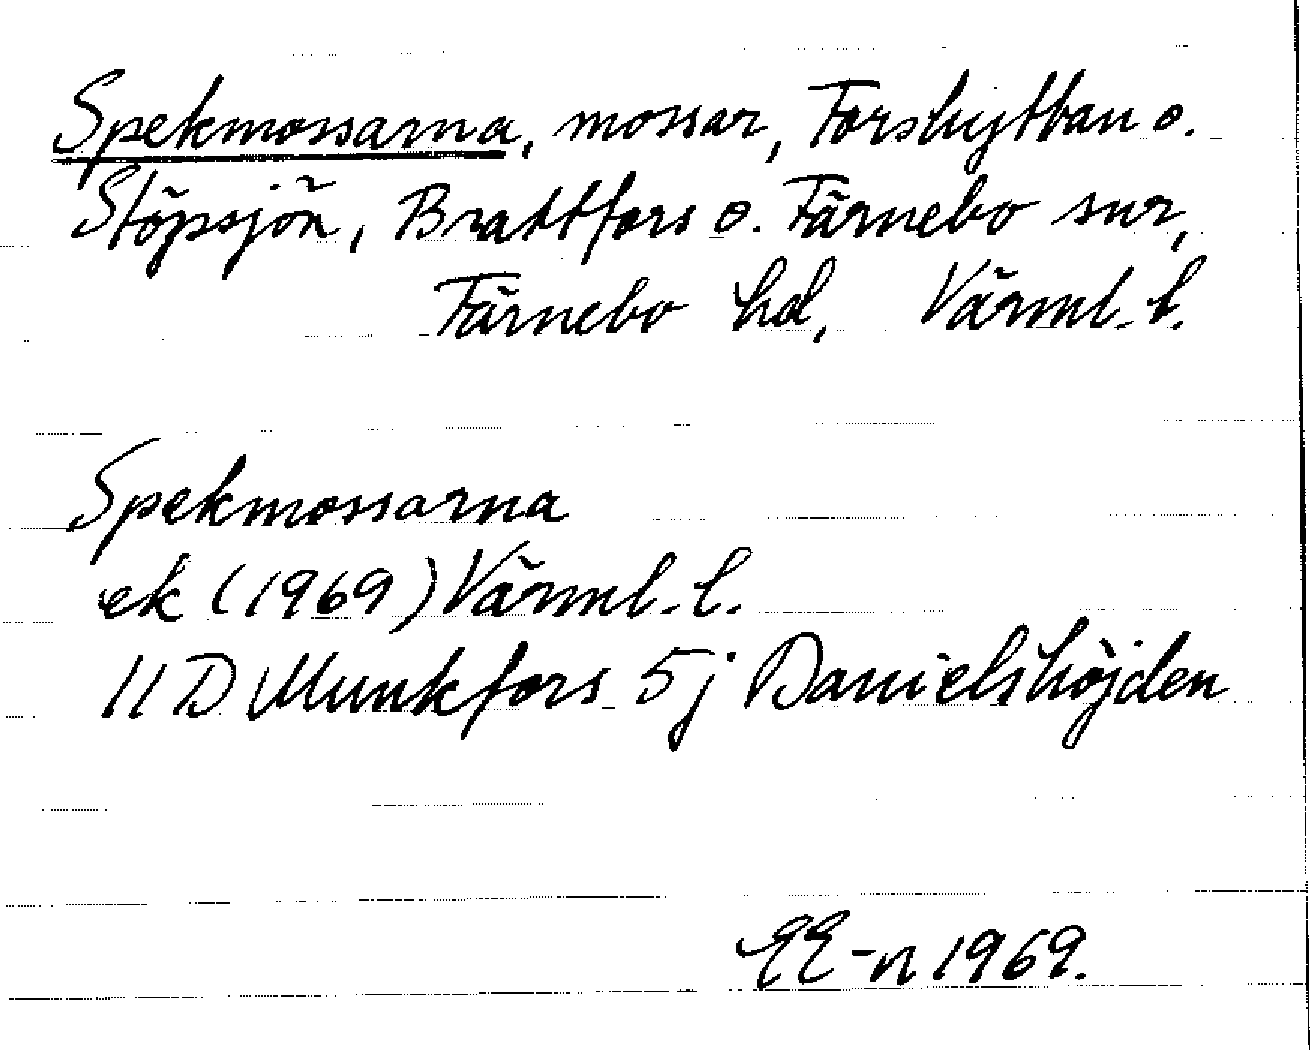 Spekmossarna, mossar, Forshyttan o.
Stöpsjön, Brattfors o. Färnebo snr,
Färnebo hd, Värml. l.
Spekmossarna
ek (1969) Värml. l.
11 D Munkfors 5j Danielshöjden
EE-n 1969.